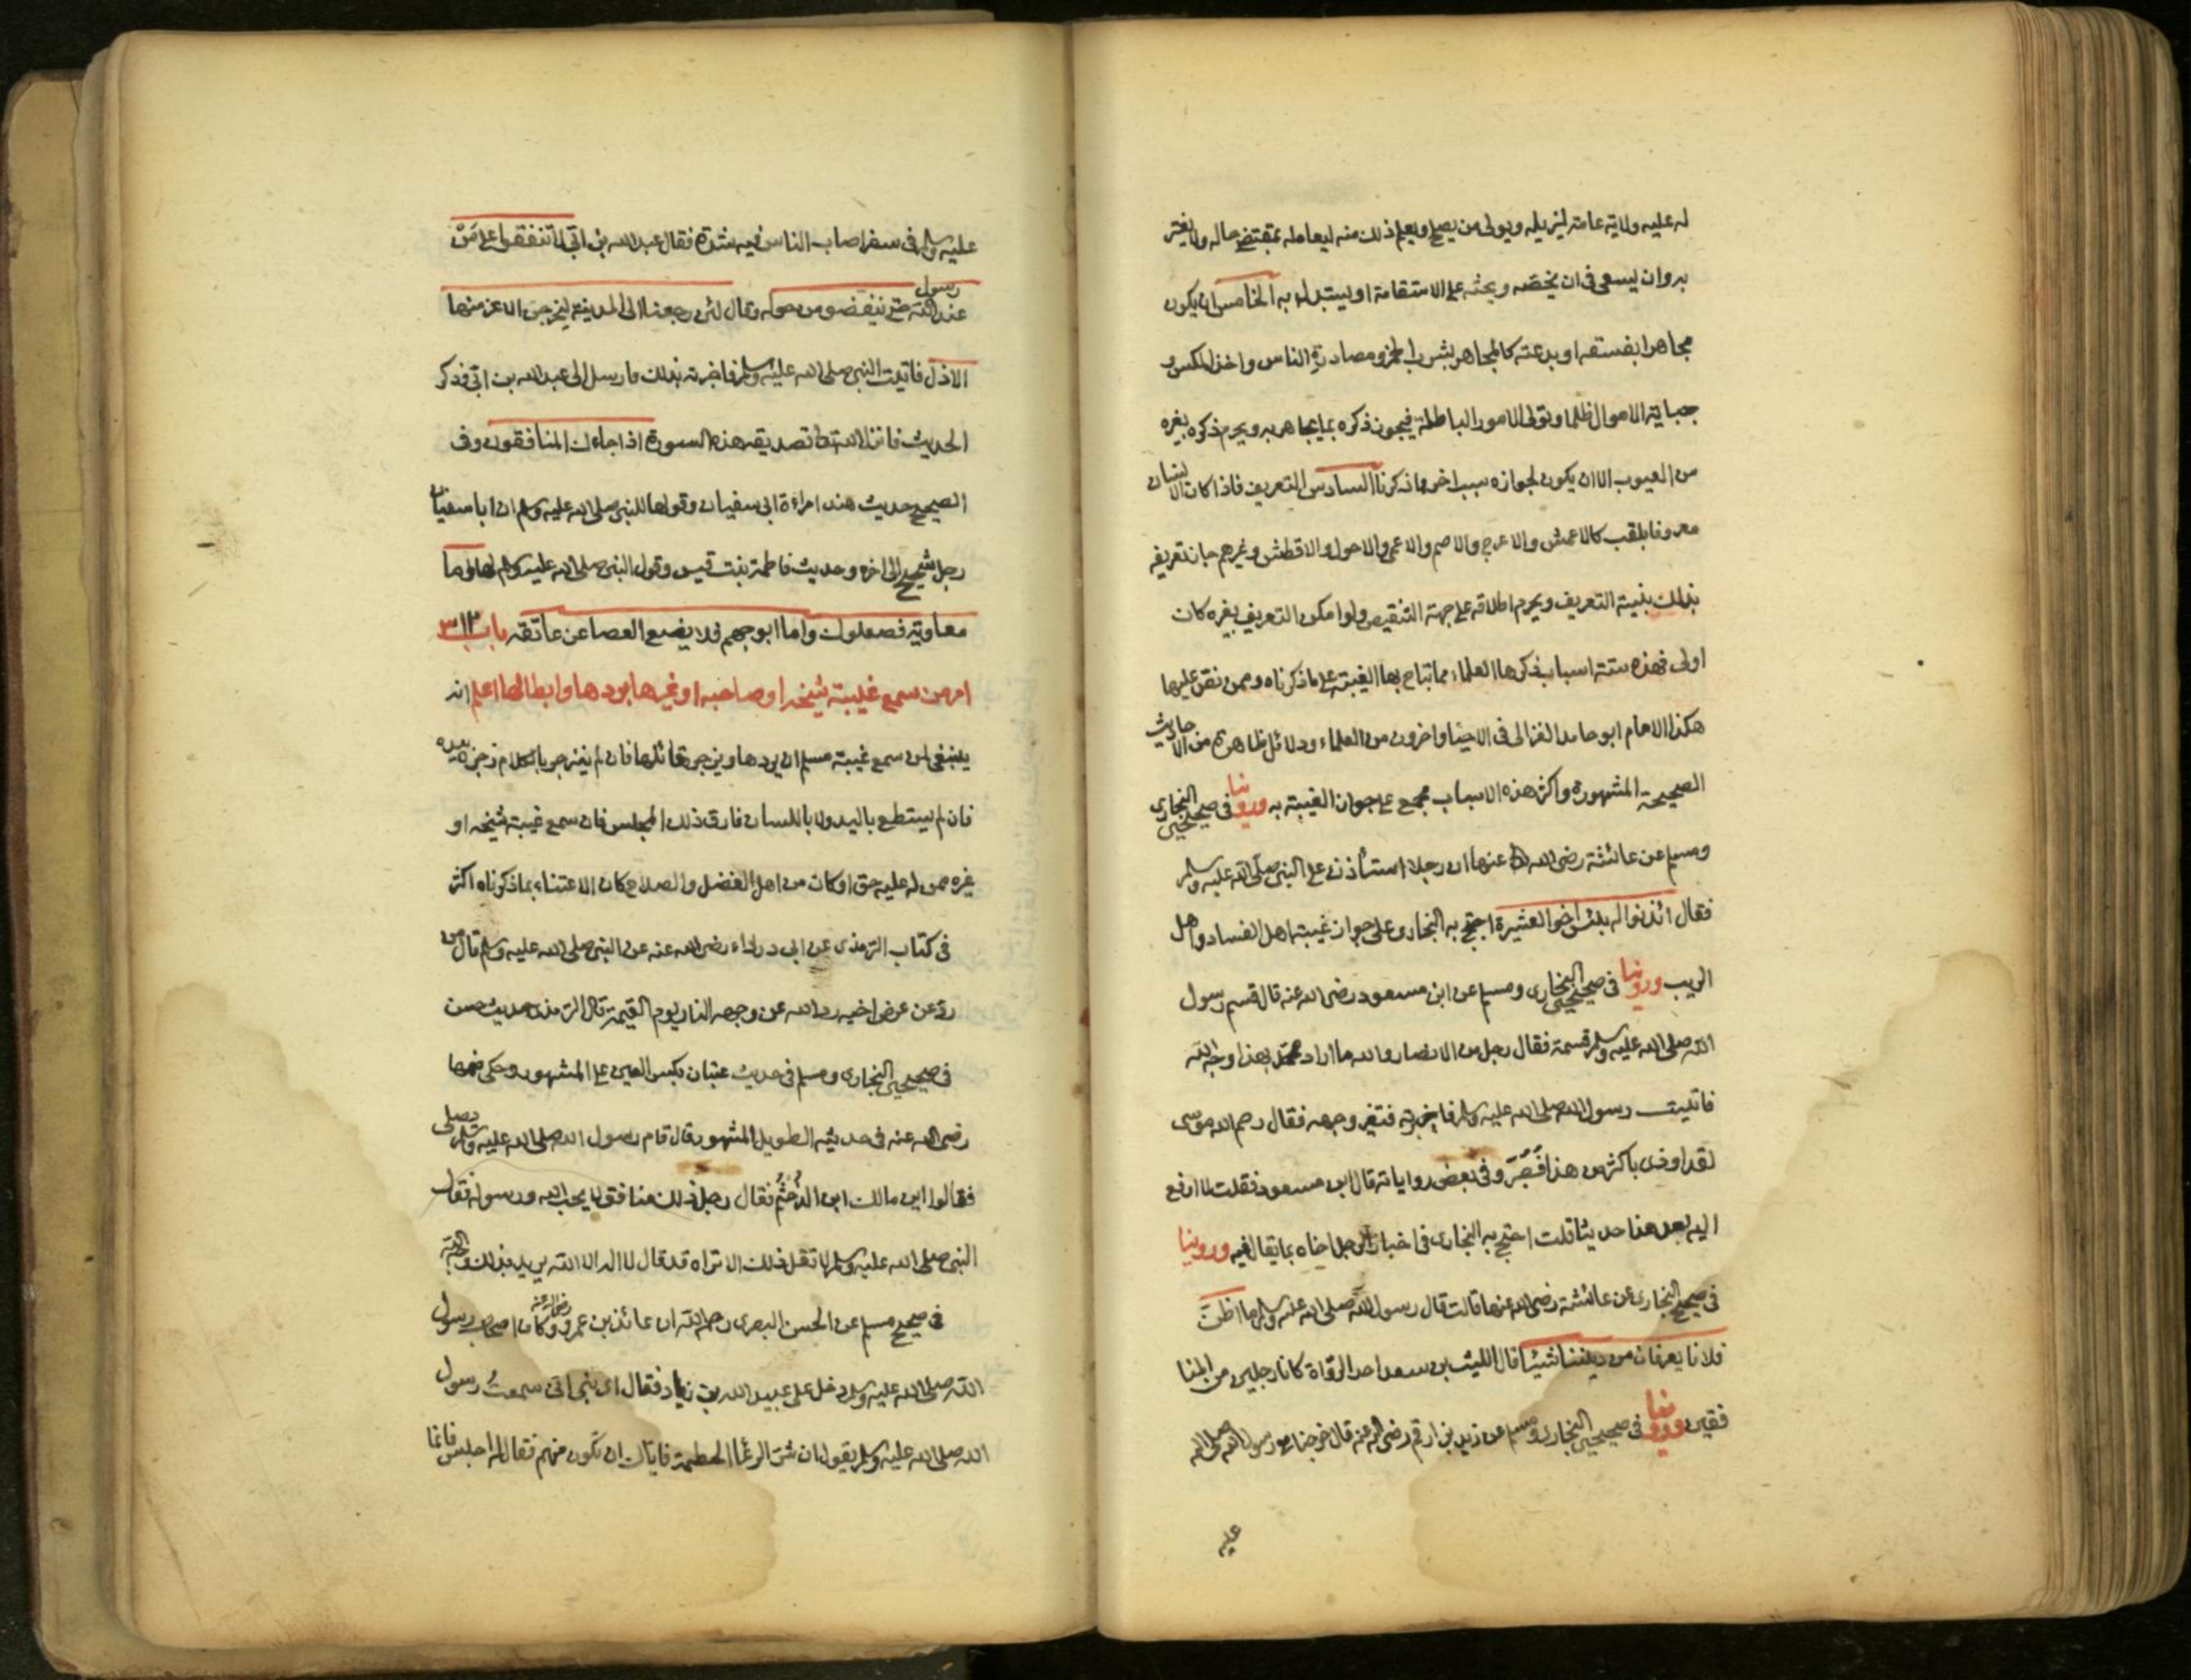 له عليه ولاية عامة ليزيله ويولى من يصلح ويعلم ذلك منه ليعامله بمقتضى حاله ولا يغتر
به وان يسعى فى ان يحثه على الاستقامة او يستبدل به الخامس ان يكون
مجاهرا بفسقه او بدعته كالمجاهر بشرب الخمر ومصادرة الناس واخذ المكس و
جباية الاموال ظلما وتولى الامور الباطلة فيجوز ذكره بما يجاهر به ويحرم ذكره بغيره
من العيوب الا ان يكون لجوازه سبب اخر مما ذكرنا السادس التعريف فاذا كان الانسان
معروفا بلقب كالاعمش والاعرج والاصم والاعمى والاحول والاقطش وغيرهم جاز تعريفه
بذلك بنية التعريف ويحرم اطلاقه على جهة التنقيص ولو امكن التعريف بغيره كان
اولى فهذه ستة اسباب ذكرها العلماء مما تباح بها الغيبة على ما ذكرناه وممن نص عليها
هكذا الامام ابو حامد الغزالى فى الاحيا واخرون من العلماء ودلائل ظاهرة من الاحاديث
الصحيحة المشهورة واكثر هذه الاسباب مجمع على جواز الغيبة به وروينا فى صحيحى البخارى
ومسلم عن عائشة رضى الله عنها ان رجلا استأذن على النبى صلى الله عليه وسلم
فقال ائذنوا له بئس اخو العشيرة احتج به البخارى على جواز غيبة اهل الفساد واهل
الريب وروينا فى صحيحى البخارى ومسلم عن ابن مسعود رضى الله عنه قال قسم رسول
الله صلى الله عليه وسلم قسمة فقال رجل من الانصار والله ما اراد محمد بهذا وجه الله
فاتيت رسول الله صلى الله عليه وسلم فاخبرته فتغير وجهه فقال رحم الله موسى
لقد اوذى باكثر من هذا فصبر وفى بعض رواياته قال ابن مسعود فقلت لا ارفع
اليه بعد هذا حديثا قلت احتج به البخارى فى اخبار الرجل اخاه بما يقال فيه وروينا
فى صحيح البخارى عن عائشة رضى الله عنها قالت قال رسول الله صلى الله عليه وسلم ما اظن
فلانا يعرفان من ديننا شيئا قال الليث بن سعد احد الرواة كانا رجلين من المنا
فقين وروينا فى صحيحى البخارى ومسلم عن زيد بن ارقم رضى الله عنه قال خرجنا مع رسول الله صلى الله
عليه
عليه وسلم فى سفر اصاب الناس فيه شدة فقال عبد الله بن ابى لا تنفقوا على من
عند رسول الله حتى ينفضوا من حوله وقال لئن رجعنا الى المدينة ليخرجن الاعز منها
الاذل فاتيت النبى صلى الله عليه وسلم فاخبرته بذلك فارسل الى عبد الله بن ابى فذكر
الحديث فانزل الله تعالى تصديقه هذه السورة اذا جاءك المنافقون وفى
الصحيح حديث هند امراءة ابى سفيان وقولها للنبى صلى الله عليه وسلم ان ابا سفيان
رجل شحيح الى اخره وحديث فاطمة بنت قيس وقول النبى صلى الله عليه وسلم لها اما
معاوية فصعلوك واما ابو جهم فلا يضع العصا عن عاتقه باب ٣١٣
امر من سمع غيبة شيخه او صاحبه او غيرها بردها وابطالها اعلم انه
ينبغى لمن سمع غيبة مسلم ان يردها ويزجر قائلها فان لم ينزجر بالكلام زجره بيده
فان لم يستطع باليد ولا باللسان فارق ذلك المجلس فان سمع غيبة شيخه او
غيره ممن له عليه حق او كان من اهل الفضل والصلاح كان الاعتناء بما ذكرناه اكثر
فى كتاب الترمذى عن ابى درداء رضى الله عنه عن النبى صلى الله عليه وسلم قال من
رد عن عرض اخيه رد الله عن وجهه النار يوم القيمة قال الترمذى حديث حسن
فى صحيحى البخارى ومسلم فى حديث عتبان بكسر العين على المشهور وحكى ضمها
رضى الله عنه فى حديثه الطويل المشهور قال قام رسول الله صلى الله عليه وسلم يصلى
فقالوا اين مالك ابن الدخثم فقال رجل ذلك منافق لا يحب الله ورسوله فقال
النبى صلى الله عليه وسلم لا تقل ذلك الا تراه قد قال لا اله الا الله يريد بذلك وجه الله
فى صحيح مسلم عن الحسن البصرى رحمه الله ان عائذ بن عمرو رضى الله عنه وكان اصحاب رسول
الله صلى الله عليه وسلم دخل على عبيد الله بن زياد فقال اى بنى انى سمعت رسول
الله صلى الله عليه وسلم يقول ان شر الرعاء الحطمة فاياك ان تكون منهم فقال له اجلس فانما